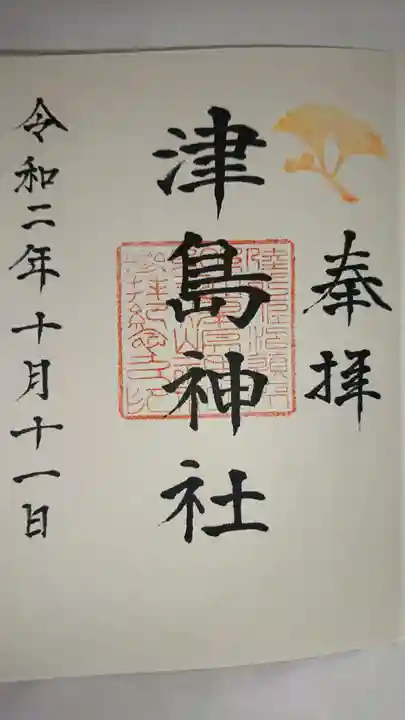 奉拝
津島神社
令和二年十月十一日